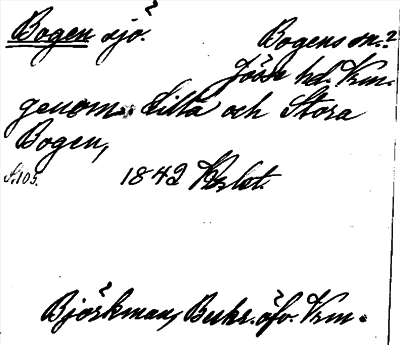 Bogen sjö.
Bogens sn.?
Jösse hd. Vrm.
genom Lilla och Stora
Bogen,
S. 105. 1842
Björkman, Beskr. öfv. Vrm.